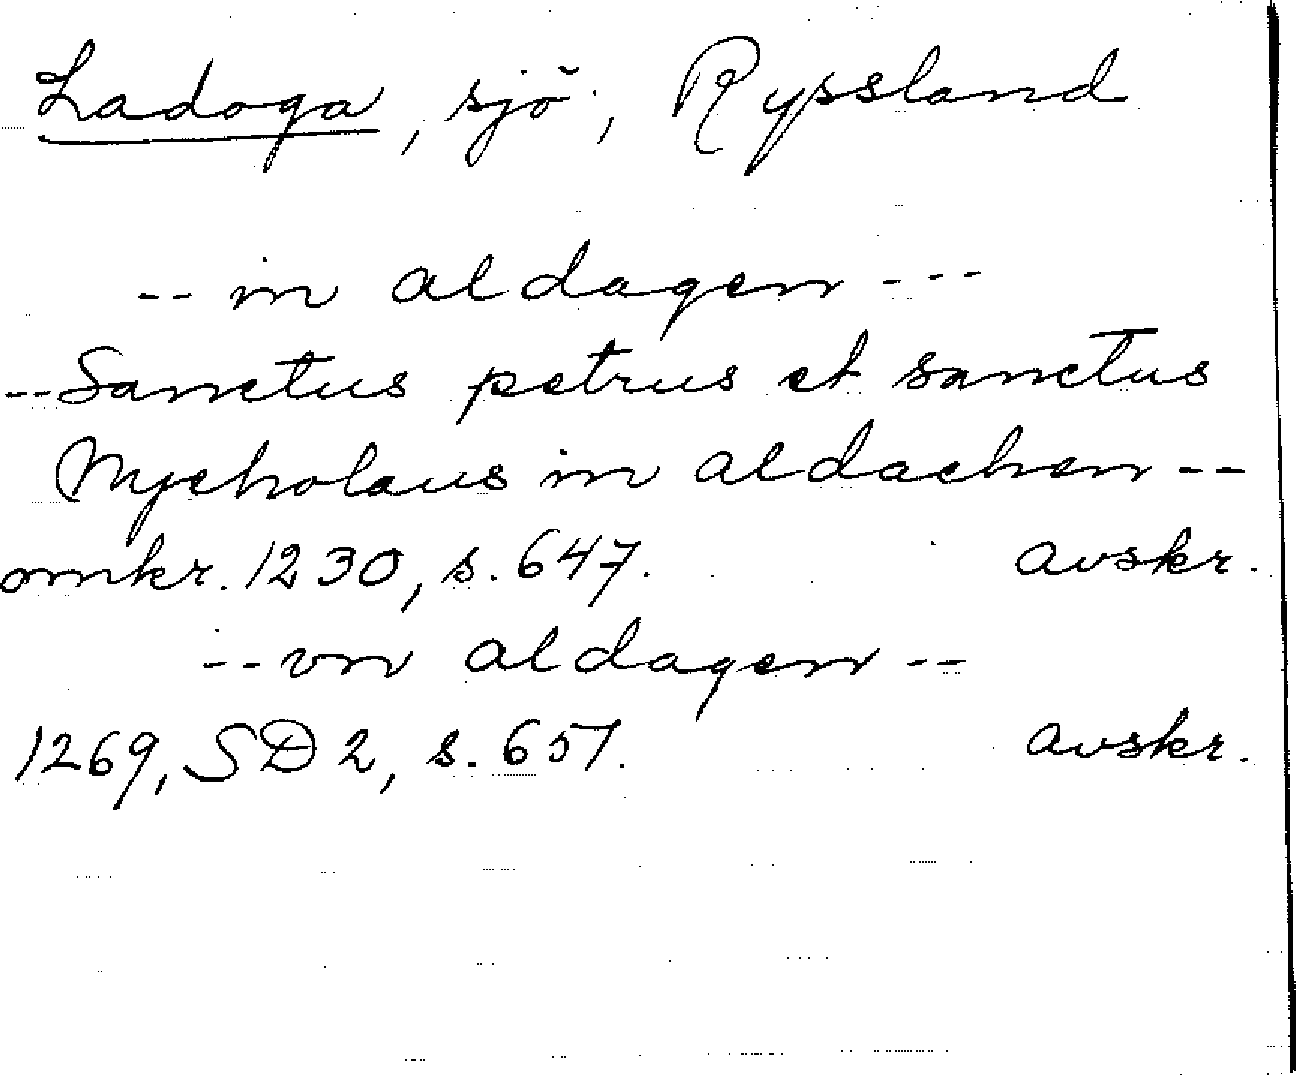 Ladoga, sjö, Ryssland
-- in aldagen ---
-- Sanctus petrus et sanctus
Nycholaus in aldachen --
omkr. 1230, s. 647. avskr.
-- vn aldagen --
1269, SD 2, s. 657. avskr.